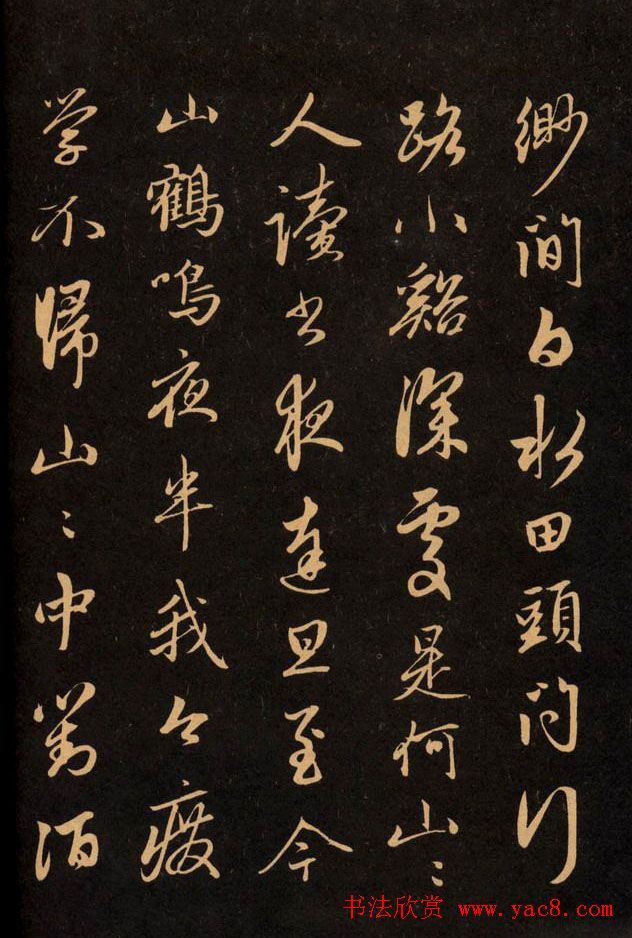 緲間白水田頭問行
路小谿深處是何山〻
人讀書夜達旦至今
山鶴鳴夜半我今廢
学不歸山〻中對酒
书法欣赏 www.yac8.com